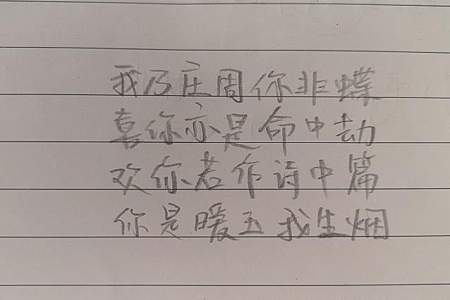 我乃庄周你非蝶
喜你亦是命中劫
欢你若作诗中篇
你是暖玉我生烟